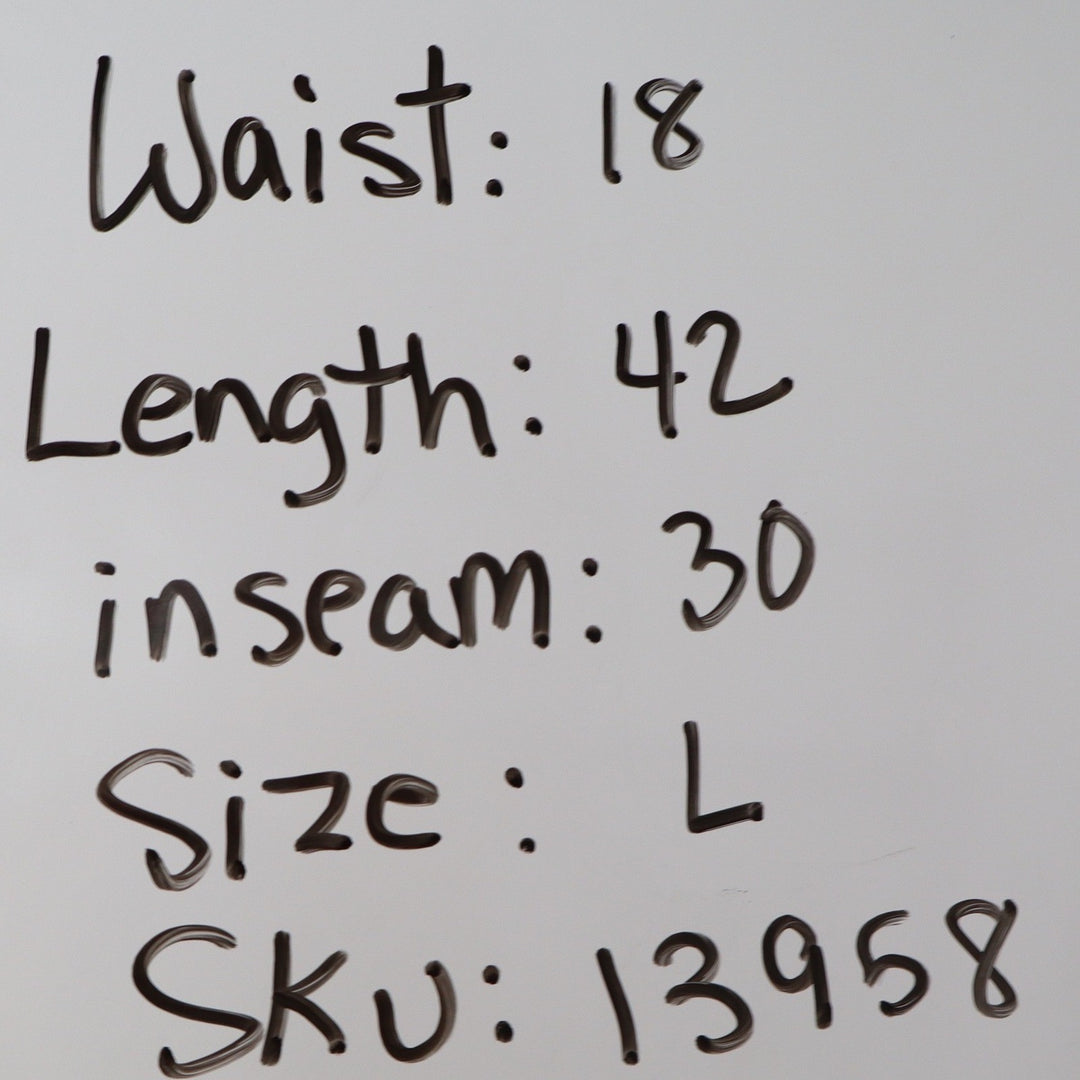 Waist: 18
Length: 42
inseam: 30
Size: L
SKU: 13958